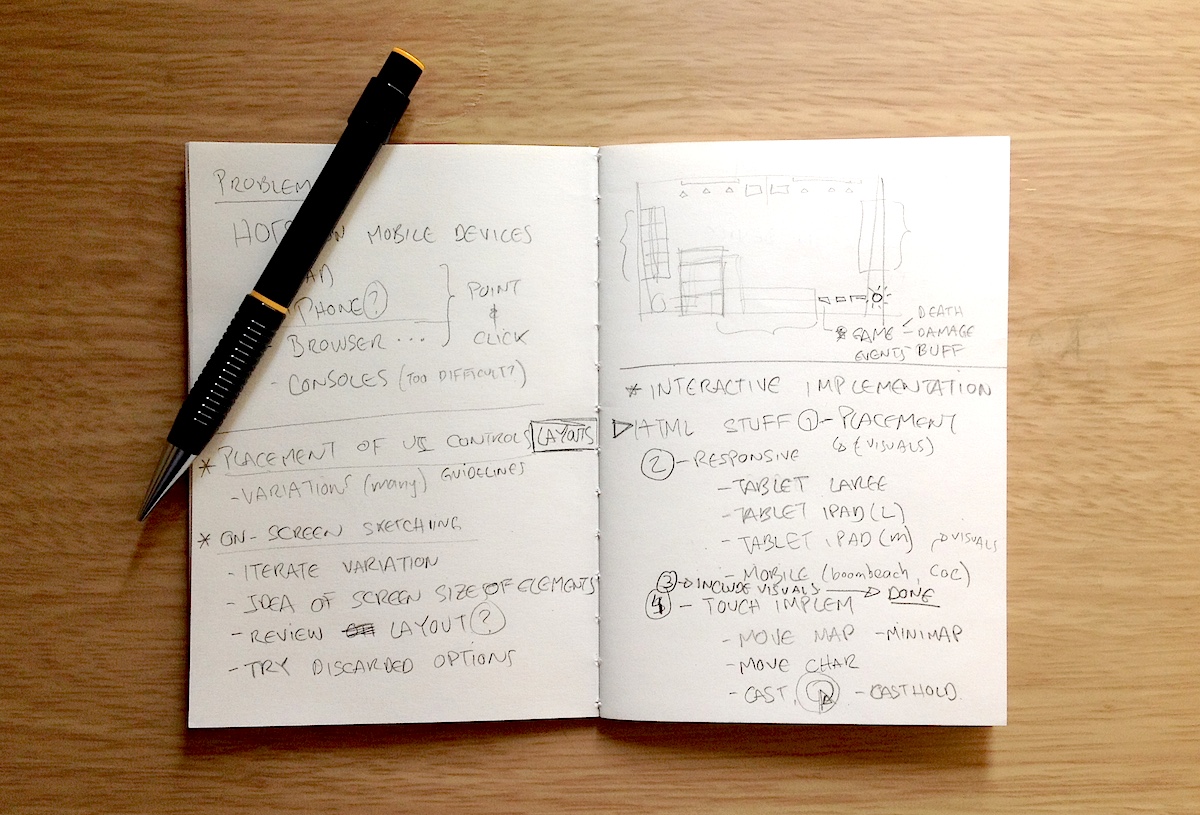 PROBLEM
HOTS ON MOBILE DEVICES
PHONE ?
- BROWSER ...
- CONSOLES (TOO DIFFICULT?)
POINT
CLICK
* PLACEMENT OF UI CONTROLS LAYOUTS
- VARIATIONS (many) GUIDELINES
* ON-SCREEN SKETCHING
- ITERATE VARIATION
- IDEA OF SCREEN SIZE OF ELEMENTS
- REVIEW LAYOUT ?
- TRY DISCARDED OPTIONS
* GAME EVENTS
- DEATH
- DAMAGE
BUFF
* INTERACTIVE IMPLEMENTATION
HTML STUFF 1 - PLACEMENT
(VISUALS)
2 - RESPONSIVE
- TABLET LARGE
- TABLET IPAD (L)
- TABLET IPAD (M) VISUALS
- MOBILE (boombeach, COC)
3 INCLUDE VISUALS → DONE
4 - TOUCH IMPLEM
- MOVE MAP - MINIMAP
- MOVE CHAR
- CAST, - CAST HOLD.